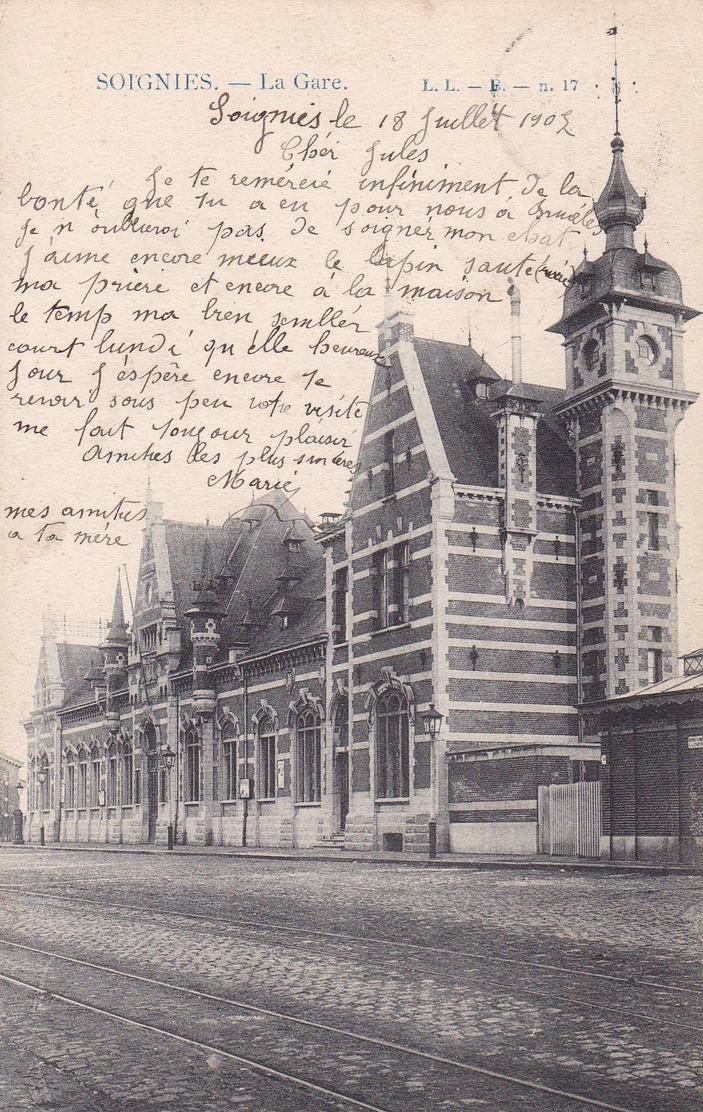 SOIGNIES. — La Gare. L. L. — B. — n. 17
Soignies le 18 Juillet 1902
Chér Jules
Je te remércié infiniment de la
bonté que tu a eu pour nous á Bruxéles
Je n'oublieroi pas de soigner mon chat
J'aime encore mieux le lapin sauté
ma prière et encore à la maison
le temp ma bien semblér
court lundi qu'elle heureux
Jour J'éspère encore te
revoir sous peu votre visite
me fait toujour plaisir
Amities les plus sincéres
Marie
mes amities
a ta mére